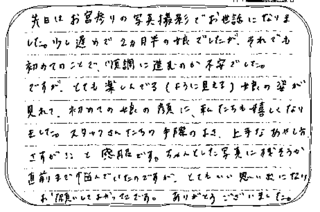 先日はお宮参りの写真撮影でお世話になりま
した。少し遅めで2ヵ月半の娘でしたが、それでも
初めてのことで順調に進むのか不安でした。
ですが、とても楽しんでる(ように見える)娘の姿が
見れて、初めての娘の顔に、私たちも嬉しくなり
ました。スタッフさんたちの手際のよさ、上手なあやし方
さすが!!と感服です。ちゃんとした写真に残そうか
直前まで悩んでいたのですが、とてもいい思い出になり
お願いしてよかったです。ありがとうございました。